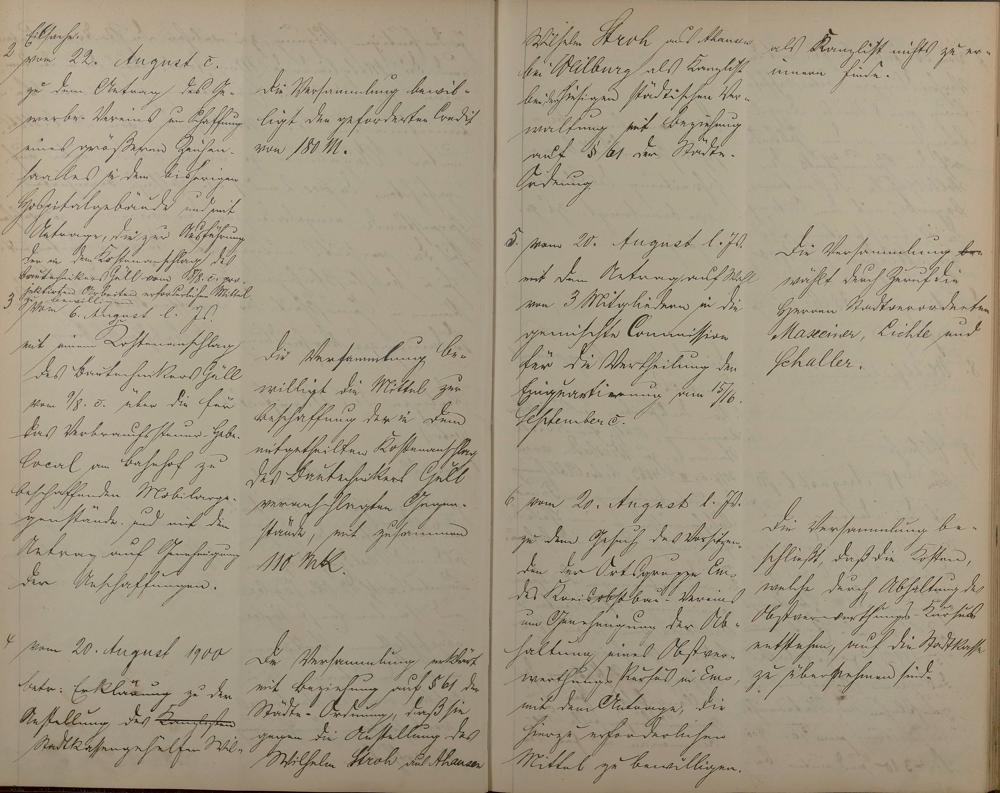 Eilsache.
2
vom 22. August c.
zu dem Antrag des Ge-
werbe-Vereins um Schaffung
eines größeren Zeichen-
saales in dem bisherigen
Hospitalgebäude und mit
Antrage, die zur Ausführung
der in dem Kostenanschlag des
Bautechnikers Gull vom c. pro-
jektirten Arbeiten erforderlichen Mittel
zu bewilligen
Die Versammlung bewil-
ligt den geforderten Credit
von 180 M.
3
vom 6. August l. Js.
mit einem Kostenanschlag
des Bautechnikers Gull
vom c. über die für
das Verbrauchssteuer-Hebe-
local am Bahnhof zu
beschaffenden Mobilarge-
genstände und mit dem
Antrag auf Genehmigung
der Anschaffungen.
Die Versammlung be-
willigt die Mittel zur
Beschaffung der in dem
mitgetheilten Kostenanschlag
des Bautechnikers Gull
veranschlagten Gegen-
stände, mit zusammen
110 Mk.
4
vom 20. August 1900
betr: Erklärung zu der
Anstellung des
Stadtkassengehilfen Wil-
Die Versammlung erklärt
mit Beziehung auf § 61 der
Städte-Ordnung, daß sie
gegen die Anstellung des
Wilhelm Stroh aus Ahausen
Wilhelm Stroh aus Ahausen
bei Weilburg als Kanzlist
bei der hiesigen städtischen Ver-
waltung mit Beziehung
auf § 61 der Städte-
Ordnung
als Kanzlist nichts zu er-
innern finde.
5.
vom 20. August l. Js.
mit dem Antrag auf Wahl
von 3 Mitgliedern in die
gemischte Commission
für die Vertheilung der
Einquartierung am 15/16.
September c.
Die Versammlung be-
wählt durch Zuruf die
Herren Stadtverordneten
Maxeiner, Lichte und
Schaller.
6
vom 20. August l. Js.
zu dem Gesuch des Vorsitzen-
den der Ortsgruppe Ems
des Kreisobstbau-Vereins
um Genehmigung der Ab-
haltung eines Obstver-
werthungs-Kursus in Ems,
mit dem Antrage, die
hierzu erforderlichen
Mittel zu bewilligen.
Die Versammlung be-
schließt, daß die Kosten,
welche durch Abhaltung des
Obstverwerthungs-Kursus
entstehen, auf die Stadtkasse
zu übernehmen sind.